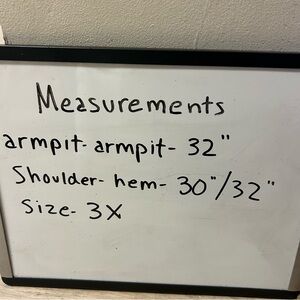 Measurements
armpit-armpit- 32"
Shoulder- hem- 30"/32"
Size- 3X